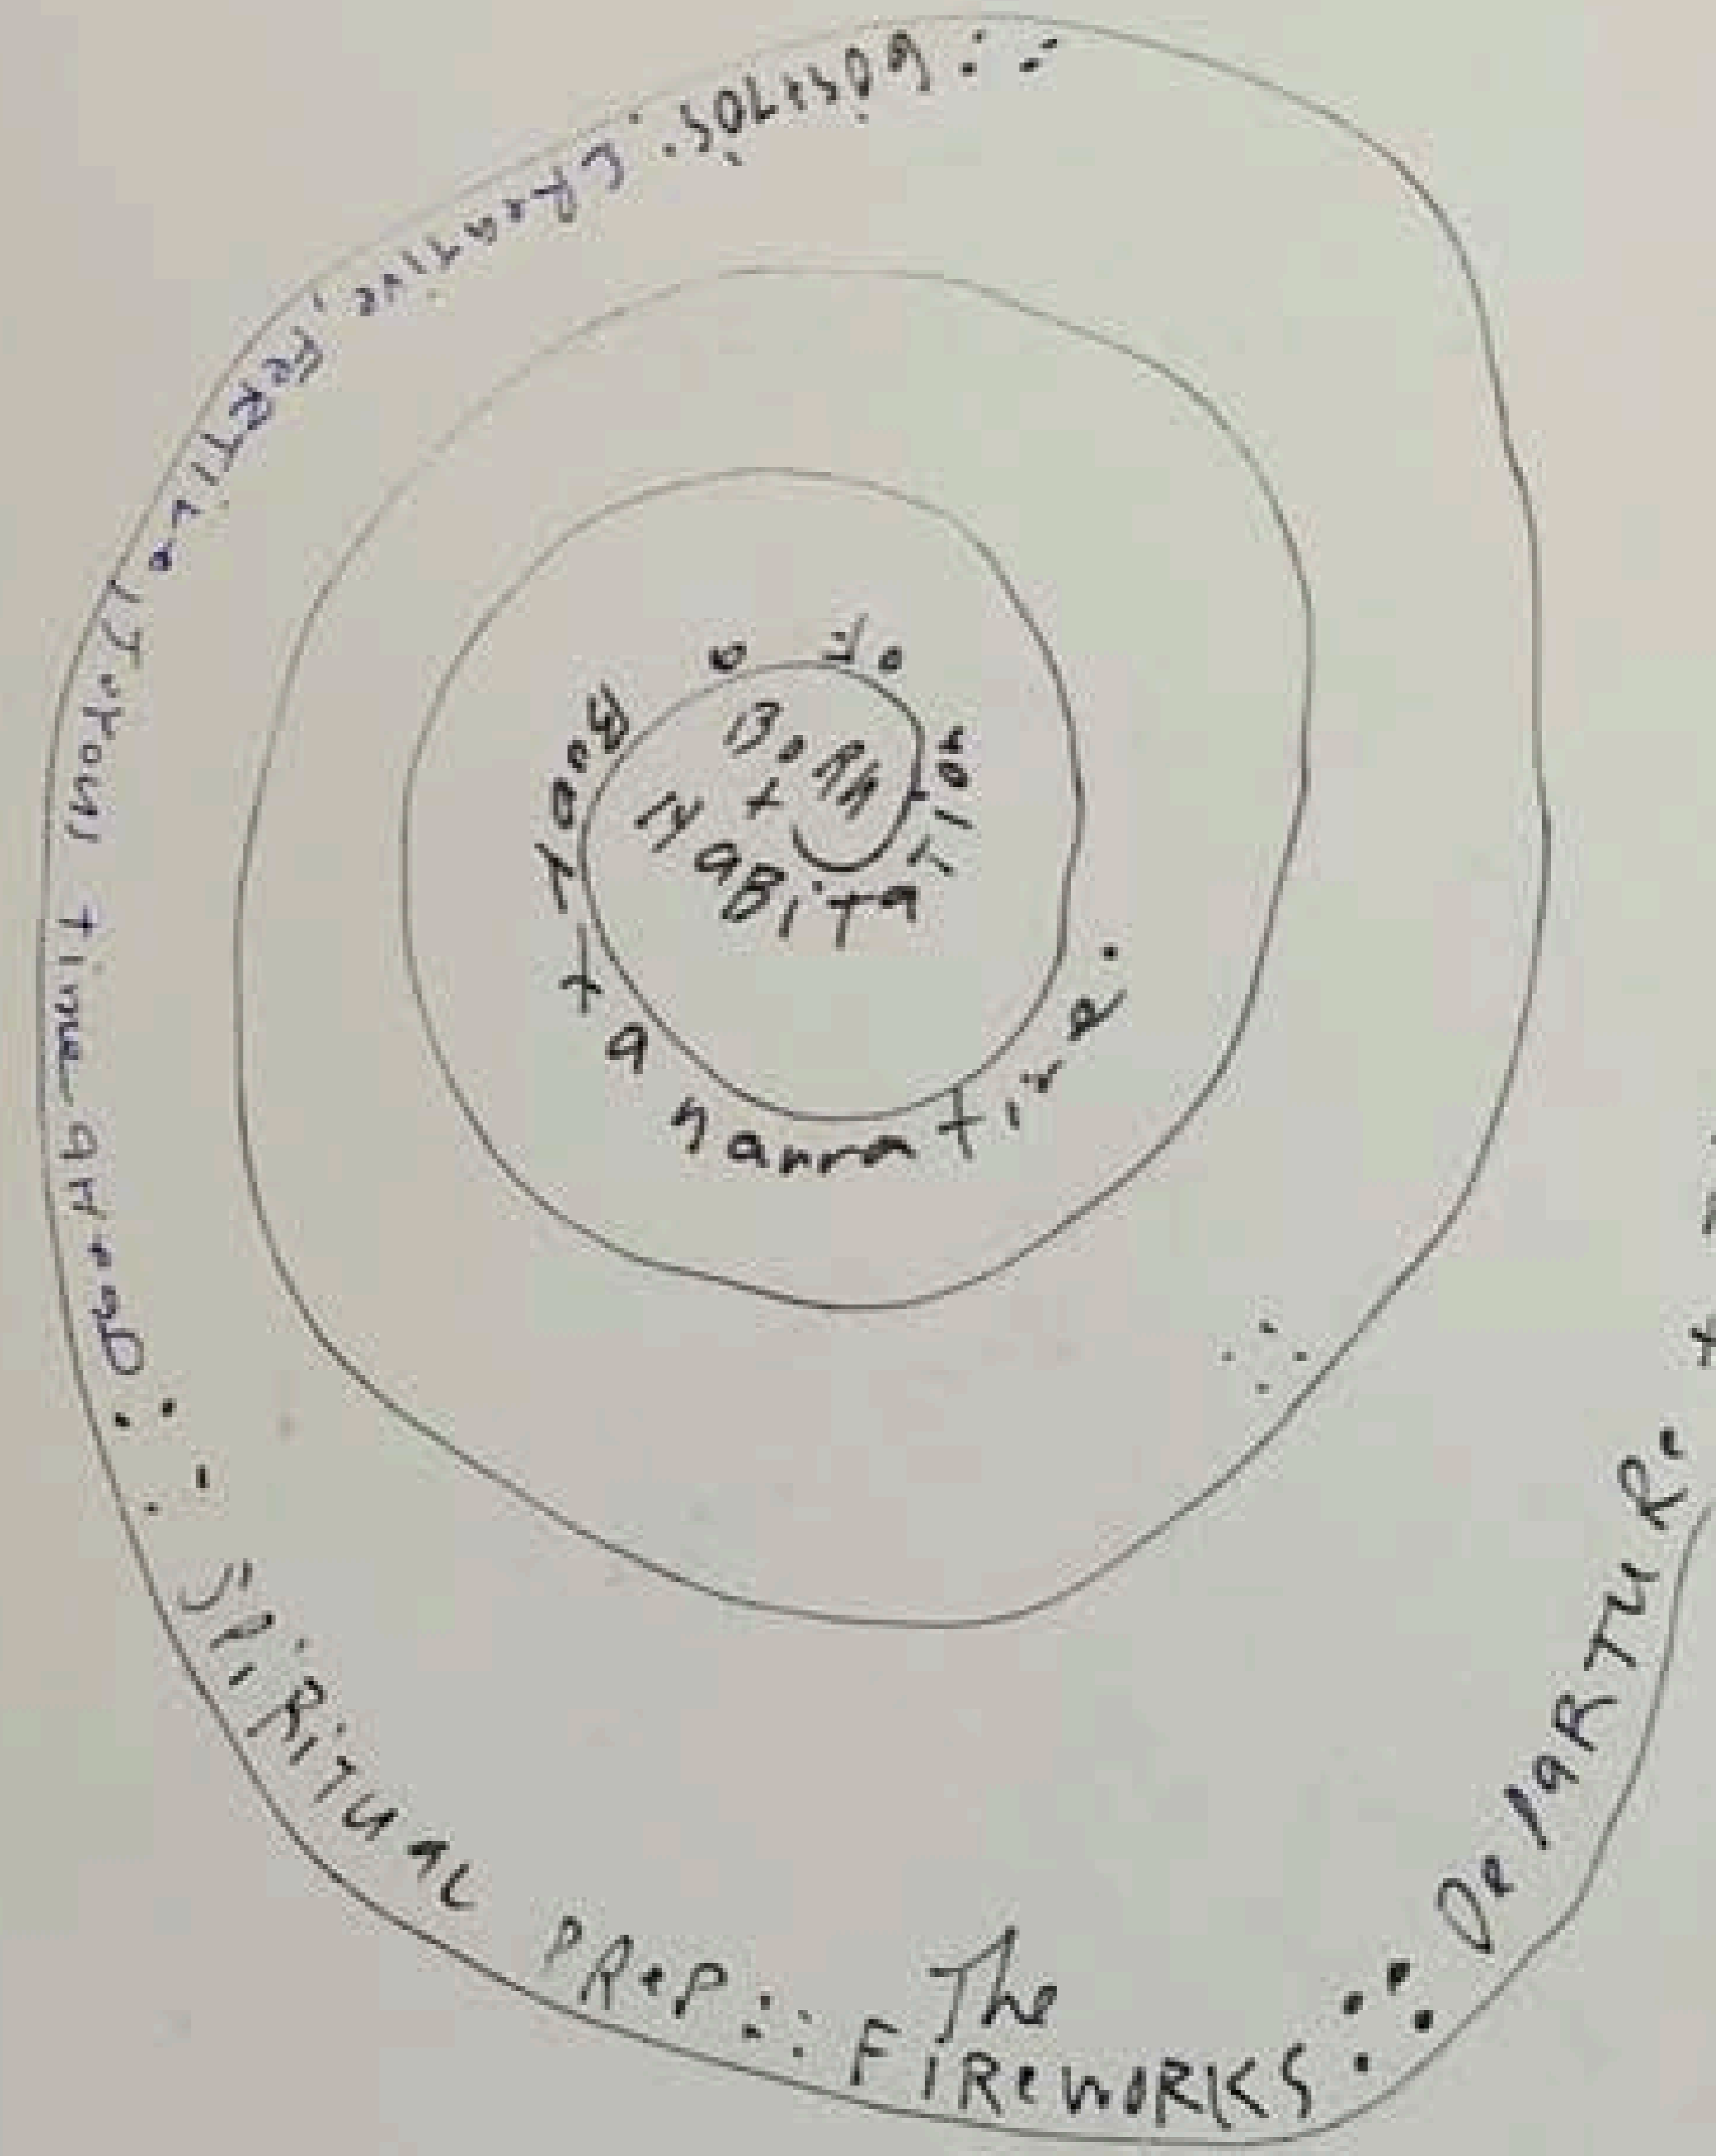 BoRN
+
HaBiTaTion oF a Body + a narrative.
60's+70's. CReaTive, FeRTiLe, Joyous time aHead :: SPiRiTuaL PReP :: The FiReWORKS :: DePaRTURe +